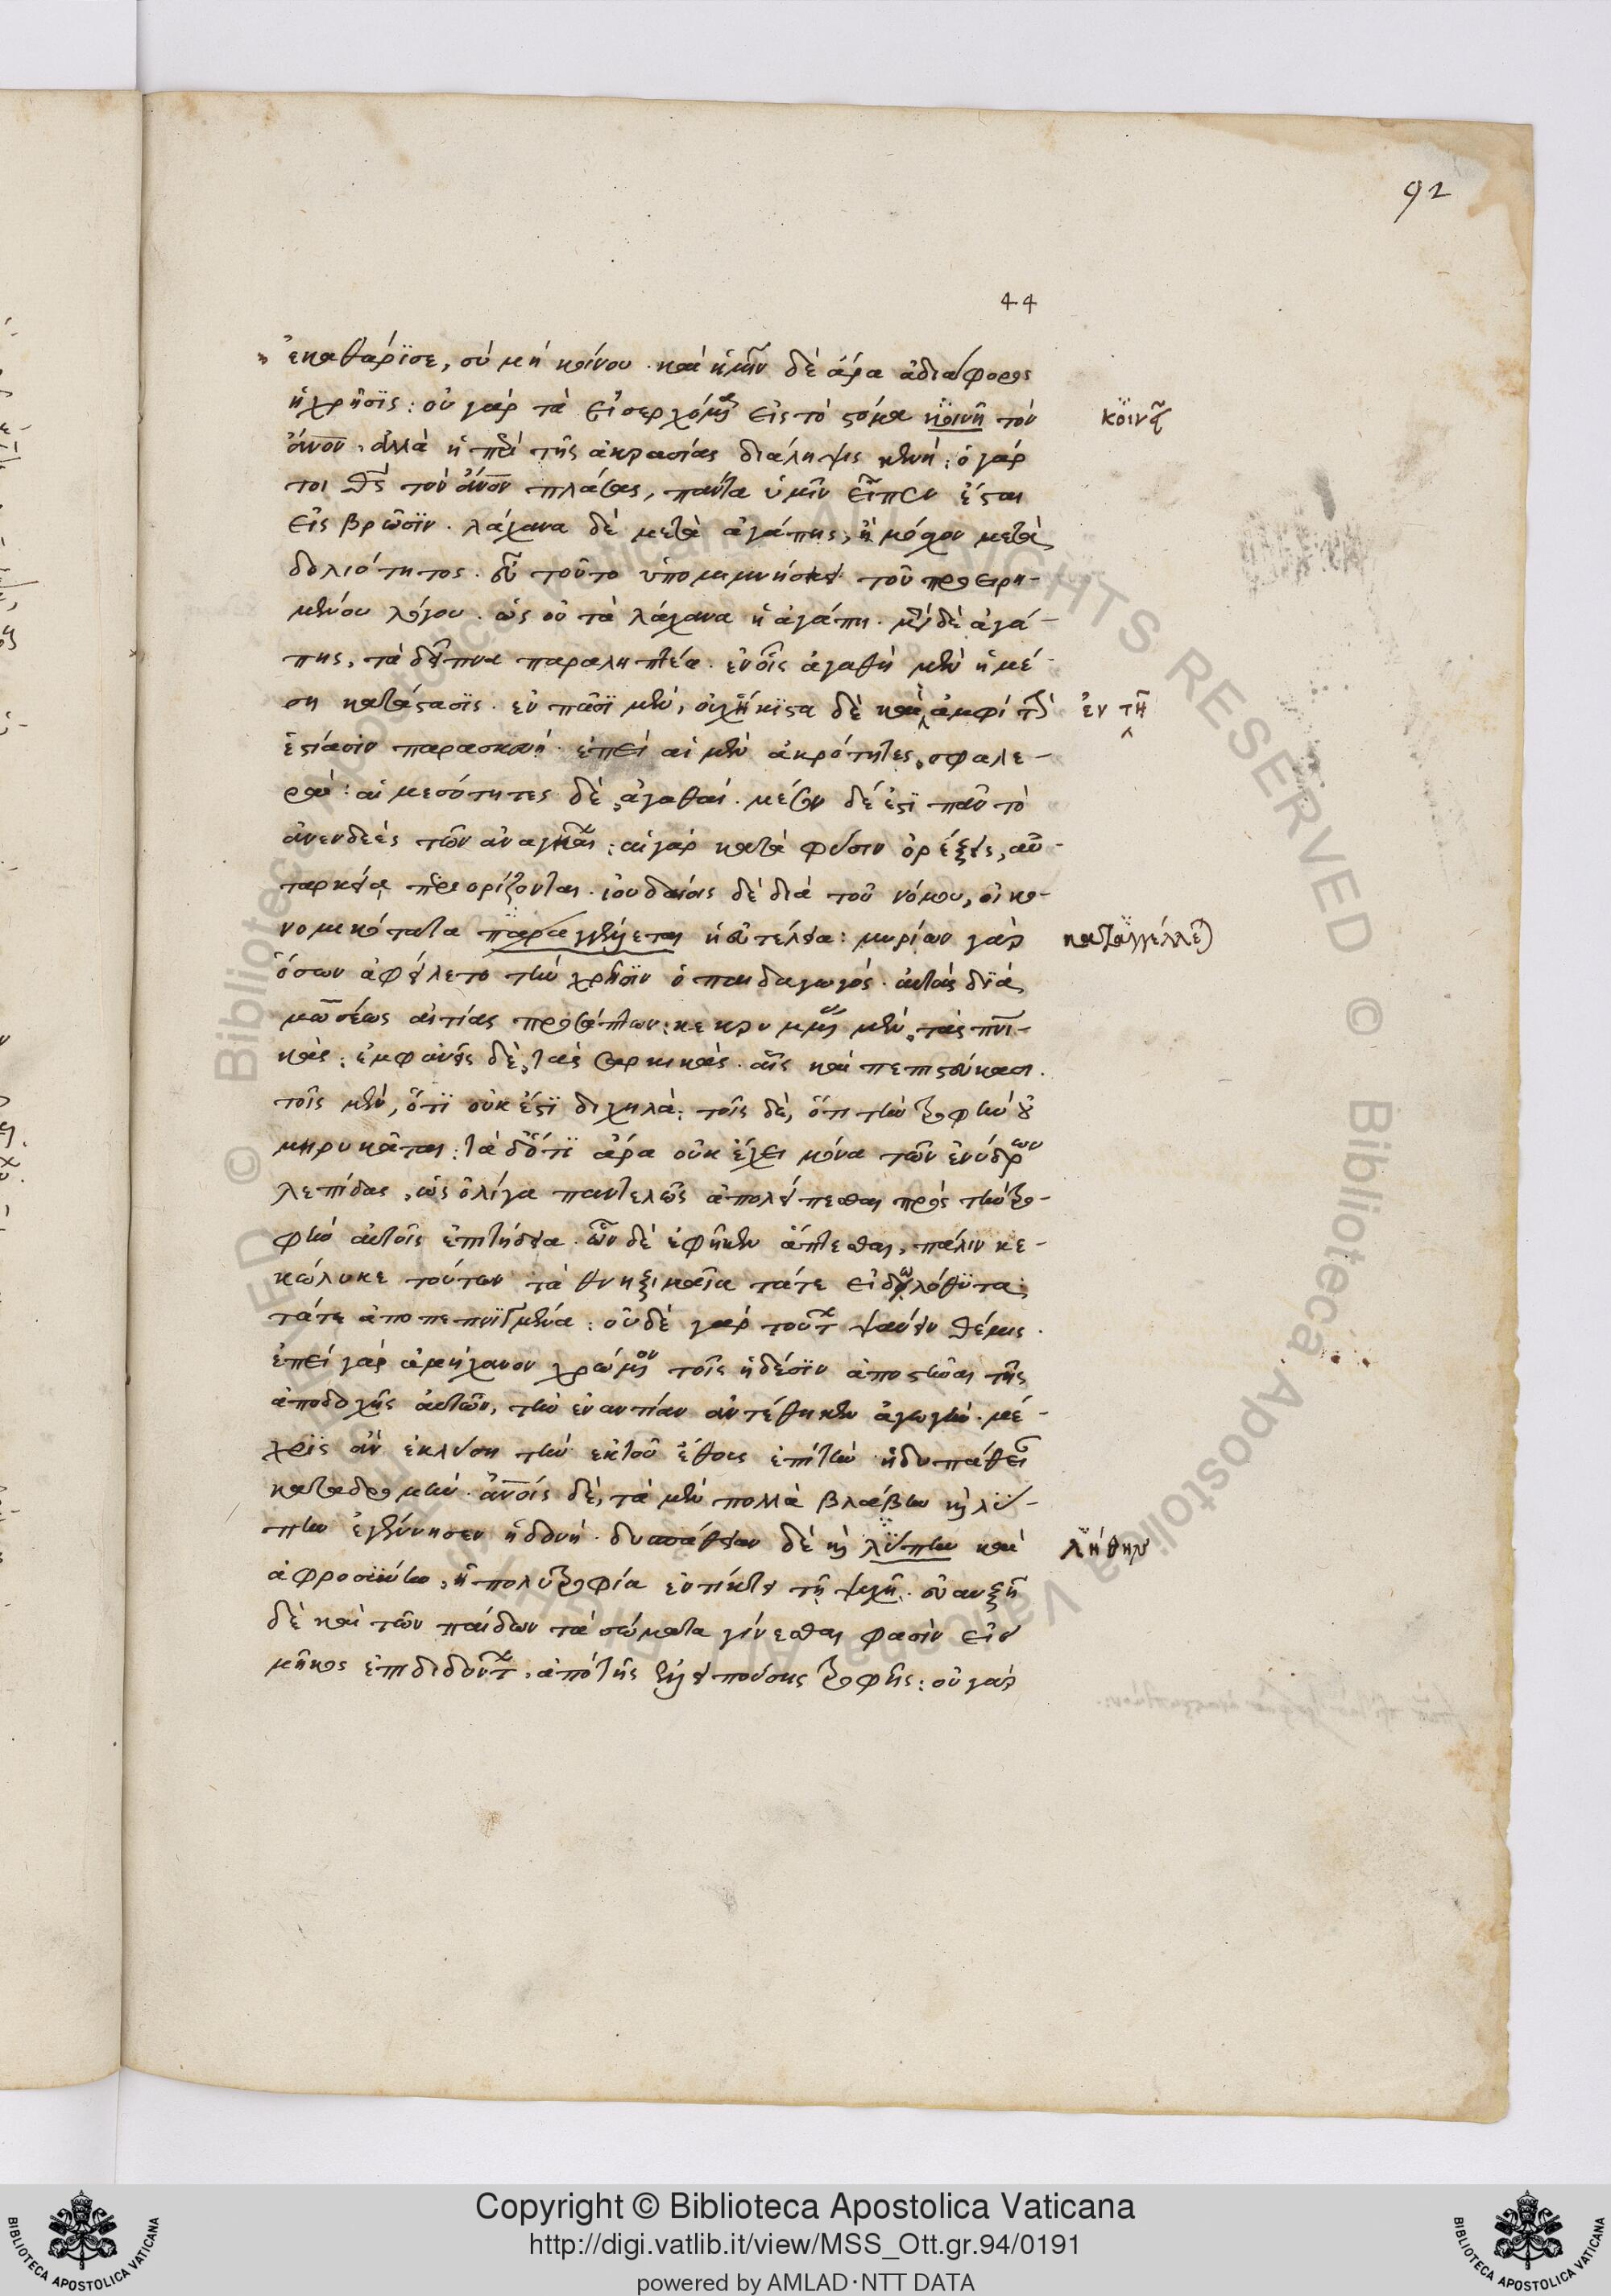 92
44
ἐκαθάρϊσε, σὺ μὴ κοίνου. καὶ ἡμῖν δὲ ἄρα ἀδιάφορος
ἡ χρῆσϊς: οὐ γὰρ τὰ εἰσερχόμενα εἰς τὸ στόμα κοινῆ τὸν
κοινοῖ
ἄνον. ἀλλὰ ἡ περὶ τῆς ἀκρασίας διάληψις κενή: ὁ γάρ
τοι θς τὸν ἄνον πλάσας, πάντα ὑμῖν εἶπεν ἔσται
εἰς βρῶσϊν. λάχανα δὲ μετὰ ἀγάπης, ἢ μόσχον μετὰ
δολιότητος. εὖ τοῦτο ὑπομιμνήσκει τοῦ προειρη-
μένου λόγου. ὡς οὐ τὰ λάχανα ἡ ἀγάπη. μετὰ δὲ ἀγά-
πης, τὰ δεῖπνα παραληπτέα. ἐν οἷς ἀγαθὴ μὲν ἡ μέ-
ση κατάστασϊς. ἐν πᾶσϊ μὲν, οὐχ ἥκϊστα δὲ καὶ ἀμφὶ τὴν
ἐν τῆ
ἑστίασιν παρασκευή. ἐπεὶ αἱ μὲν ἀκρότητες, σφαλε-
ραί: αἱ μεσότητες δὲ, ἀγαθαί. μέσον δέ ἐστϊ πᾶν τὸ
ἀνενδεὲς τῶν ἀναγκαίων: αἱ γὰρ κατὰ φύσιν ὀρέξεις, αὐ-
ταρκείᾳ περιορίζονται. ἰουδαίοις δὲ διὰ τοῦ νόμου, οἰκο-
νομικώτατα παραγγέλλεται ἡ εὐτέλεια: μυρίων γὰρ
καταγγέλλεται
ὅσων ἀφείλετο τὴν χρῆσϊν ὁ παιδαγωγὸς. αὐτὰς διὰ
μωσέως αἰτίας προσάπτων: κεκρυμμένας μὲν, τὰς πνι-
κὰς: ἐμφανεῖς δὲ, τὰς σαρκικὰς. αἷς καὶ πεπιστεύκασι.
τοῖς μὲν, ὅτϊ οὐκ ἔστϊ διχηλὰ: τοῖς δὲ, ὅτι τὴν τροφὴν οὐ
μηρυκᾶται: τὰ δ' ὅτϊ ἄρα οὐκ ἔχει μόνα τῶν ἐνύδρων
λεπίδας, ὡς ὀλίγα παντελῶς ἀπολείπεσθαι πρὸς τὴν τρο-
φὴν αὐτοῖς ἐπιτήδεια. ὧν δὲ ἐφῆκεν ἅπτεσθαι, πάλιν κε-
κώλυκε τούτων τὰ θνηξιμαῖα τά τε εἰδωλόθϋτα:
τά τε ἀποπεπνϊγμένα: οὐδὲ γὰρ τούτων ψαύειν θέμις.
ἐπεὶ γὰρ ἀμήχανον χρώμενον τοῖς ἡδέσϊν ἀποστῆναι τῆς
ἀποδοχῆς αὐτῶν, τὴν ἐναντίαν ἀντέθηκεν ἀγωγὴν. μέ-
χρϊς ἂν ἐκλύση τὴν ἐκ τοῦ ἔθους ἐπὶ τὴν ἡδυπάθειαν
καταδρομὴν. ἀνοις δὲ, τὰ μὲν πολλὰ βλάβην καὶ λύ-
πην ἐγέννησεν ἡδονή. δυσπάθειαν δὲ καὶ λύπην καὶ
λήθην
ἀφροσύνην, ἡ πολυτροφία ἐντίκτει τῆ ψυχῆ. εὐαυξῆ
δὲ καὶ τῶν παίδων τὰ σώματα γίνεσθαι φασὶν εἰς
μῆκος ἐπιδιδόντα. ἀπὸ τῆς ἐλλειπούσης τροφῆς: οὐ γὰρ
Copyright © Biblioteca Apostolica Vaticana
http://digi.vatlib.it/view/MSS_Ott.gr.94/0191
powered by AMLAD·NTT DATA